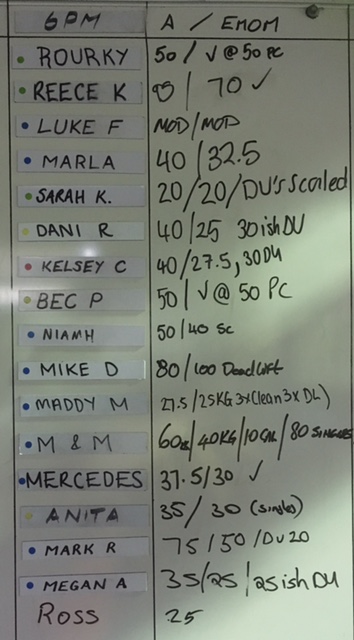 6PM A / EMOM
ROURKY 50 / √ @ 50 PC
REECE K / 70 ✓
LUKE F MOD/MOD
MARLA 40 / 32.5
SARAH K. 20/20/DU's Scaled
DANI R 40/25 30ish DU
KELSEY C 40/27.5, 30DU
BEC P 50/ √ @ 50 PC
NIAMH 50/40 SC
MIKE D 80/100 Deadlift
MADDY M 27.5/25KG 3xClean 3x DL)
M & M 60/40KG/10CAL/80 SINGLES
MERCEDES 37.5/30 ✓
ANITA 35/ 30 (singles)
MARK R 75/50/DU20
MEGAN A 35/25/25ish DU
ROSS 25